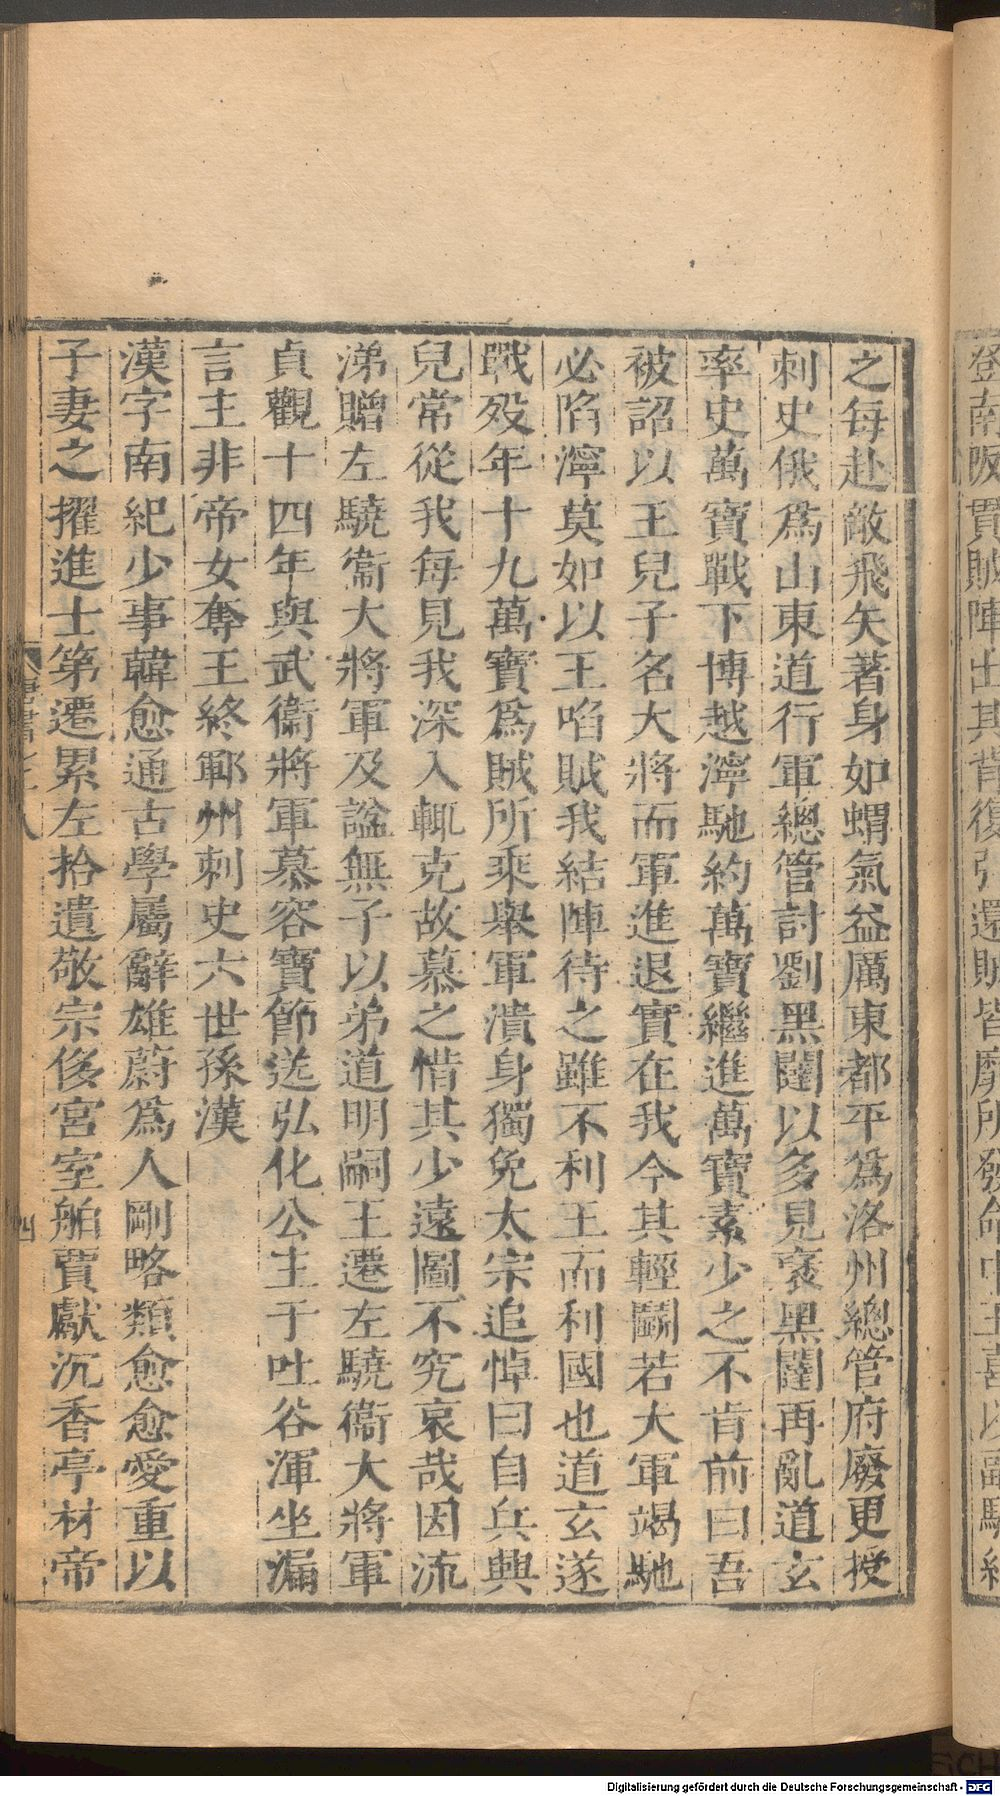 登南阪貫賊陣出其背復引還賊皆靡所發命中王喜以副騎給
之每赴敵飛矢著身如蝟氣益厲東都平爲洛州總管府廢更授
刺史俄爲山東道行軍總管討劉黑闥以多見褒黑闥再亂道玄
率史萬寶戰下博越濘馳約萬寶繼進萬寶素少之不肯前曰吾
被詔以王兒子名大將而軍進退實在我今其輕鬭若大軍竭馳
必陷濘莫如以王啗賊我結陣待之雖不利王而利國也道玄遂
戰歿年十九萬寶爲賊所乘舉軍潰身獨免太宗追悼曰自兵興
兒常從我每見我深入輒克故慕之惜其少遠圖不究哀哉因流
涕贈左驍衞大將軍及諡無子以弟道明嗣王遷左驍衞大將軍
貞觀十四年與武衞將軍慕容寶節送弘化公主于吐谷渾坐漏
言主非帝女奪王終鄆州刺史六世孫漢
漢字南紀少事韓愈通古學屬辭雄蔚爲人剛略類愈愈愛重以
子妻之擢進士第遷累左拾遺敬宗侈宮室舶賈獻沉香亭材帝
唐書七十八
四
Digitalisierung gefördert durch die Deutsche Forschungsgemeinschaft - DFG